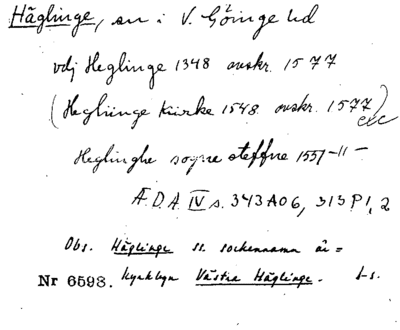 Häglinge, sn i V. Göinge hd
vdj Heglinge 1348 avskr. 1577
(Heglinge Kiirke 1548 avskr. 1577) etc
Heglinghe sogne steffne 1551 -11-
Æ.D.A. IV s. 343 A06, 313 P1, 2
Obs. Häglinge ss. sockennamn är =
Nr 6593. kyrkbyn Västra Häglinge. J-s.